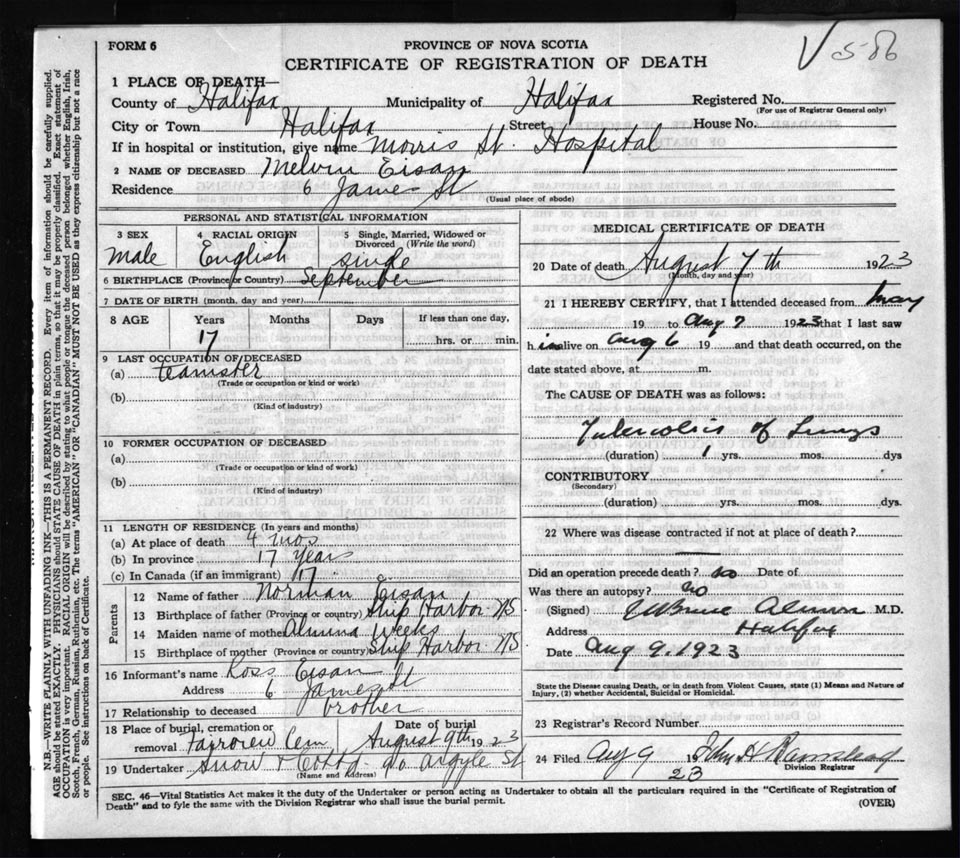 FORM 6
PROVINCE OF NOVA SCOTIA
CERTIFICATE OF REGISTRATION OF DEATH
1 PLACE OF DEATH—
County of Halifax Municipality of Halifax Registered No.
(For use of Registrar General only)
City or Town Halifax Street House No.
If in hospital or institution, give name Morris St. Hospital
2 NAME OF DECEASED Melvin Eisan
Residence 6 James St
(Usual place of abode)
PERSONAL AND STATISTICAL INFORMATION
3 SEX male
4 RACIAL ORIGIN English
5 Single, Married, Widowed or Divorced (Write the word) single
6 BIRTHPLACE (Province or Country) September
7 DATE OF BIRTH (month, day and year)
8 AGE Years Months Days If less than one day,
17 hrs. or min.
9 LAST OCCUPATION OF DECEASED
(a) teamster
(Trade or occupation or kind or work)
(b)
(Kind of industry)
10 FORMER OCCUPATION OF DECEASED
(a)
(Trade or occupation or kind of work)
(b)
(Kind of industry)
11 LENGTH OF RESIDENCE (In years and months)
(a) At place of death 4 mos
(b) In province 17 years
(c) In Canada (if an immigrant) 17
Parents
12 Name of father Norman Eisan
13 Birthplace of father (Province or country) Ship Harbor NS
14 Maiden name of mother Weeks
15 Birthplace of mother (Province or country) Ship Harbor NS
16 Informant's name Ross Eisan
Address 6 James St
17 Relationship to deceased brother
18 Place of burial, cremation or removal Cem
Date of burial August 9th 1923
19 Undertaker Snow & 90 Argyle St
(Name and Address)
MEDICAL CERTIFICATE OF DEATH
20 Date of death August 7th 1923
(Month, day and year)
21 I HEREBY CERTIFY, that I attended deceased from May
19 to Aug 7 1923 that I last saw
h im alive on Aug 6 19 and that death occurred, on the
date stated above, at m.
The CAUSE OF DEATH was as follows:
Tuberculosis of Lungs
(duration) 1 yrs. mos. dys
CONTRIBUTORY
(Secondary)
(duration) yrs. mos. dys.
22 Where was disease contracted if not at place of death?
Did an operation precede death? no Date of
Was there an autopsy? no
(Signed) Almon M.D.
Address Halifax
Date Aug 9, 1923
State the Disease causing Death, or in death from Violent Causes, state (1) Means and Nature of
Injury, (2) whether Accidental, Suicidal or Homicidal.
23 Registrar's Record Number
24 Filed Aug 9 1923 John H
Division Registrar
SEC. 46—Vital Statistics Act makes it the duty of the Undertaker or person acting as Undertaker to obtain all the particulars required in the "Certificate of Registration of
Death" and to fyle the same with the Division Registrar who shall issue the burial permit.
(OVER)
N.B.—WRITE PLAINLY WITH UNFADING INK—THIS IS A PERMANENT RECORD. Every item of information should be carefully supplied.
AGE should be stated EXACTLY. PHYSICIANS should STATE CAUSE OF DEATH in plain terms, so that it may be properly classified. Exact statement of
OCCUPATION is very important. RACIAL ORIGIN will be described by stating to what people or tongue the deceased person belonged whether English, Irish,
Scotch, French, German, Russian, Ruthenian, etc. The terms "AMERICAN" OR "CANADIAN" MUST NOT BE USED as they express citizenship but not a race
or people. See instructions on back of Certificate.